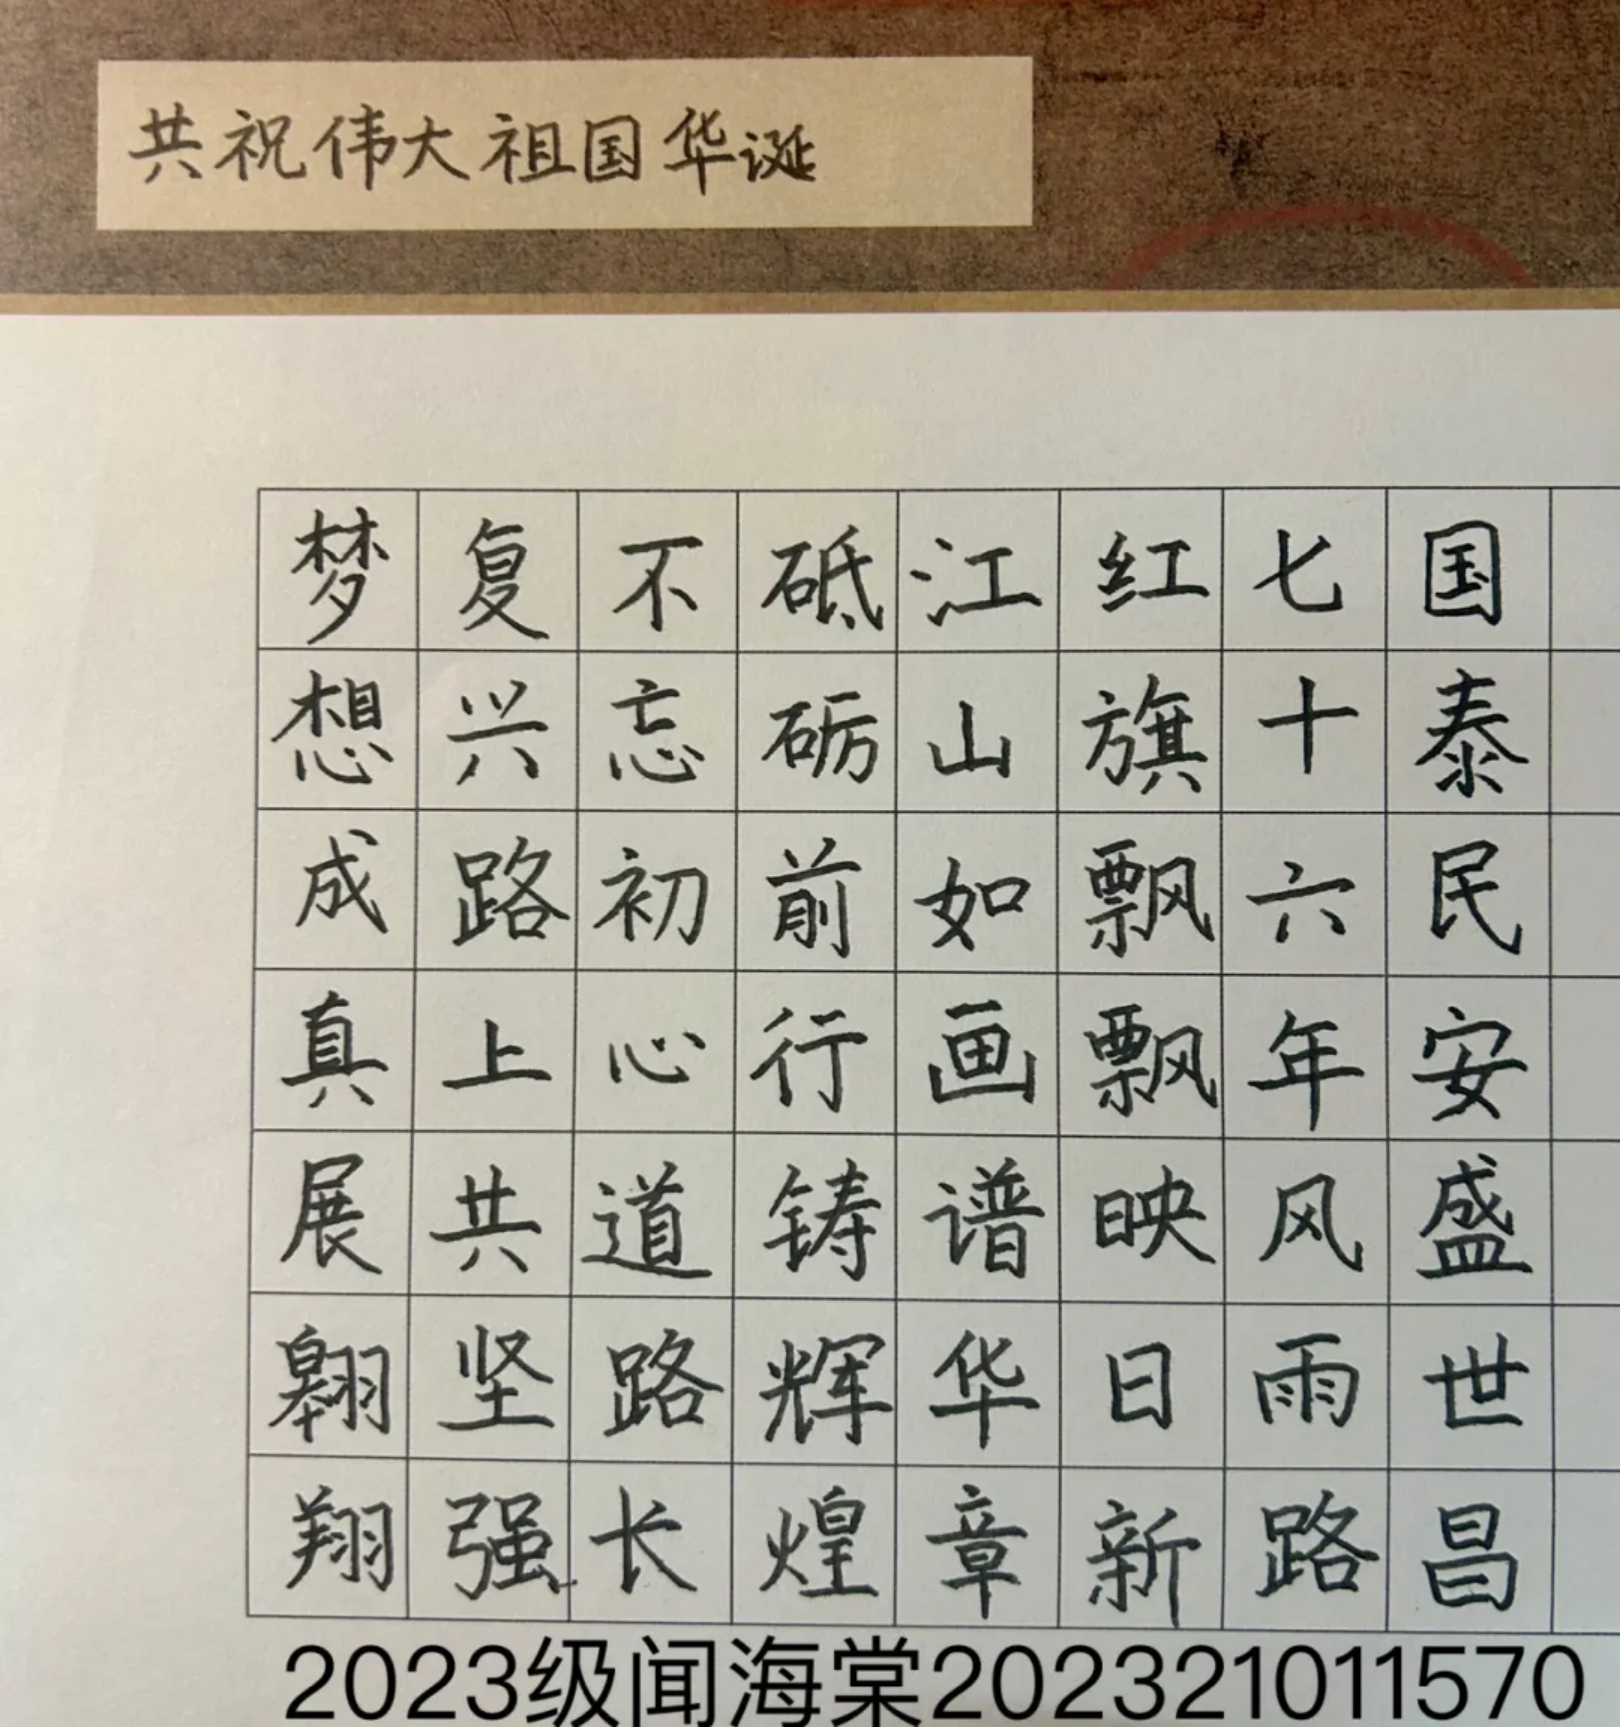 共祝伟大祖国华诞
国泰民安盛世昌
七十六年风雨路
红旗飘飘映日新
江山如画谱华章
砥砺前行铸辉煌
不忘初心道路长
复兴路上共坚强
梦想成真展翱翔
2023级闻海棠202321011570